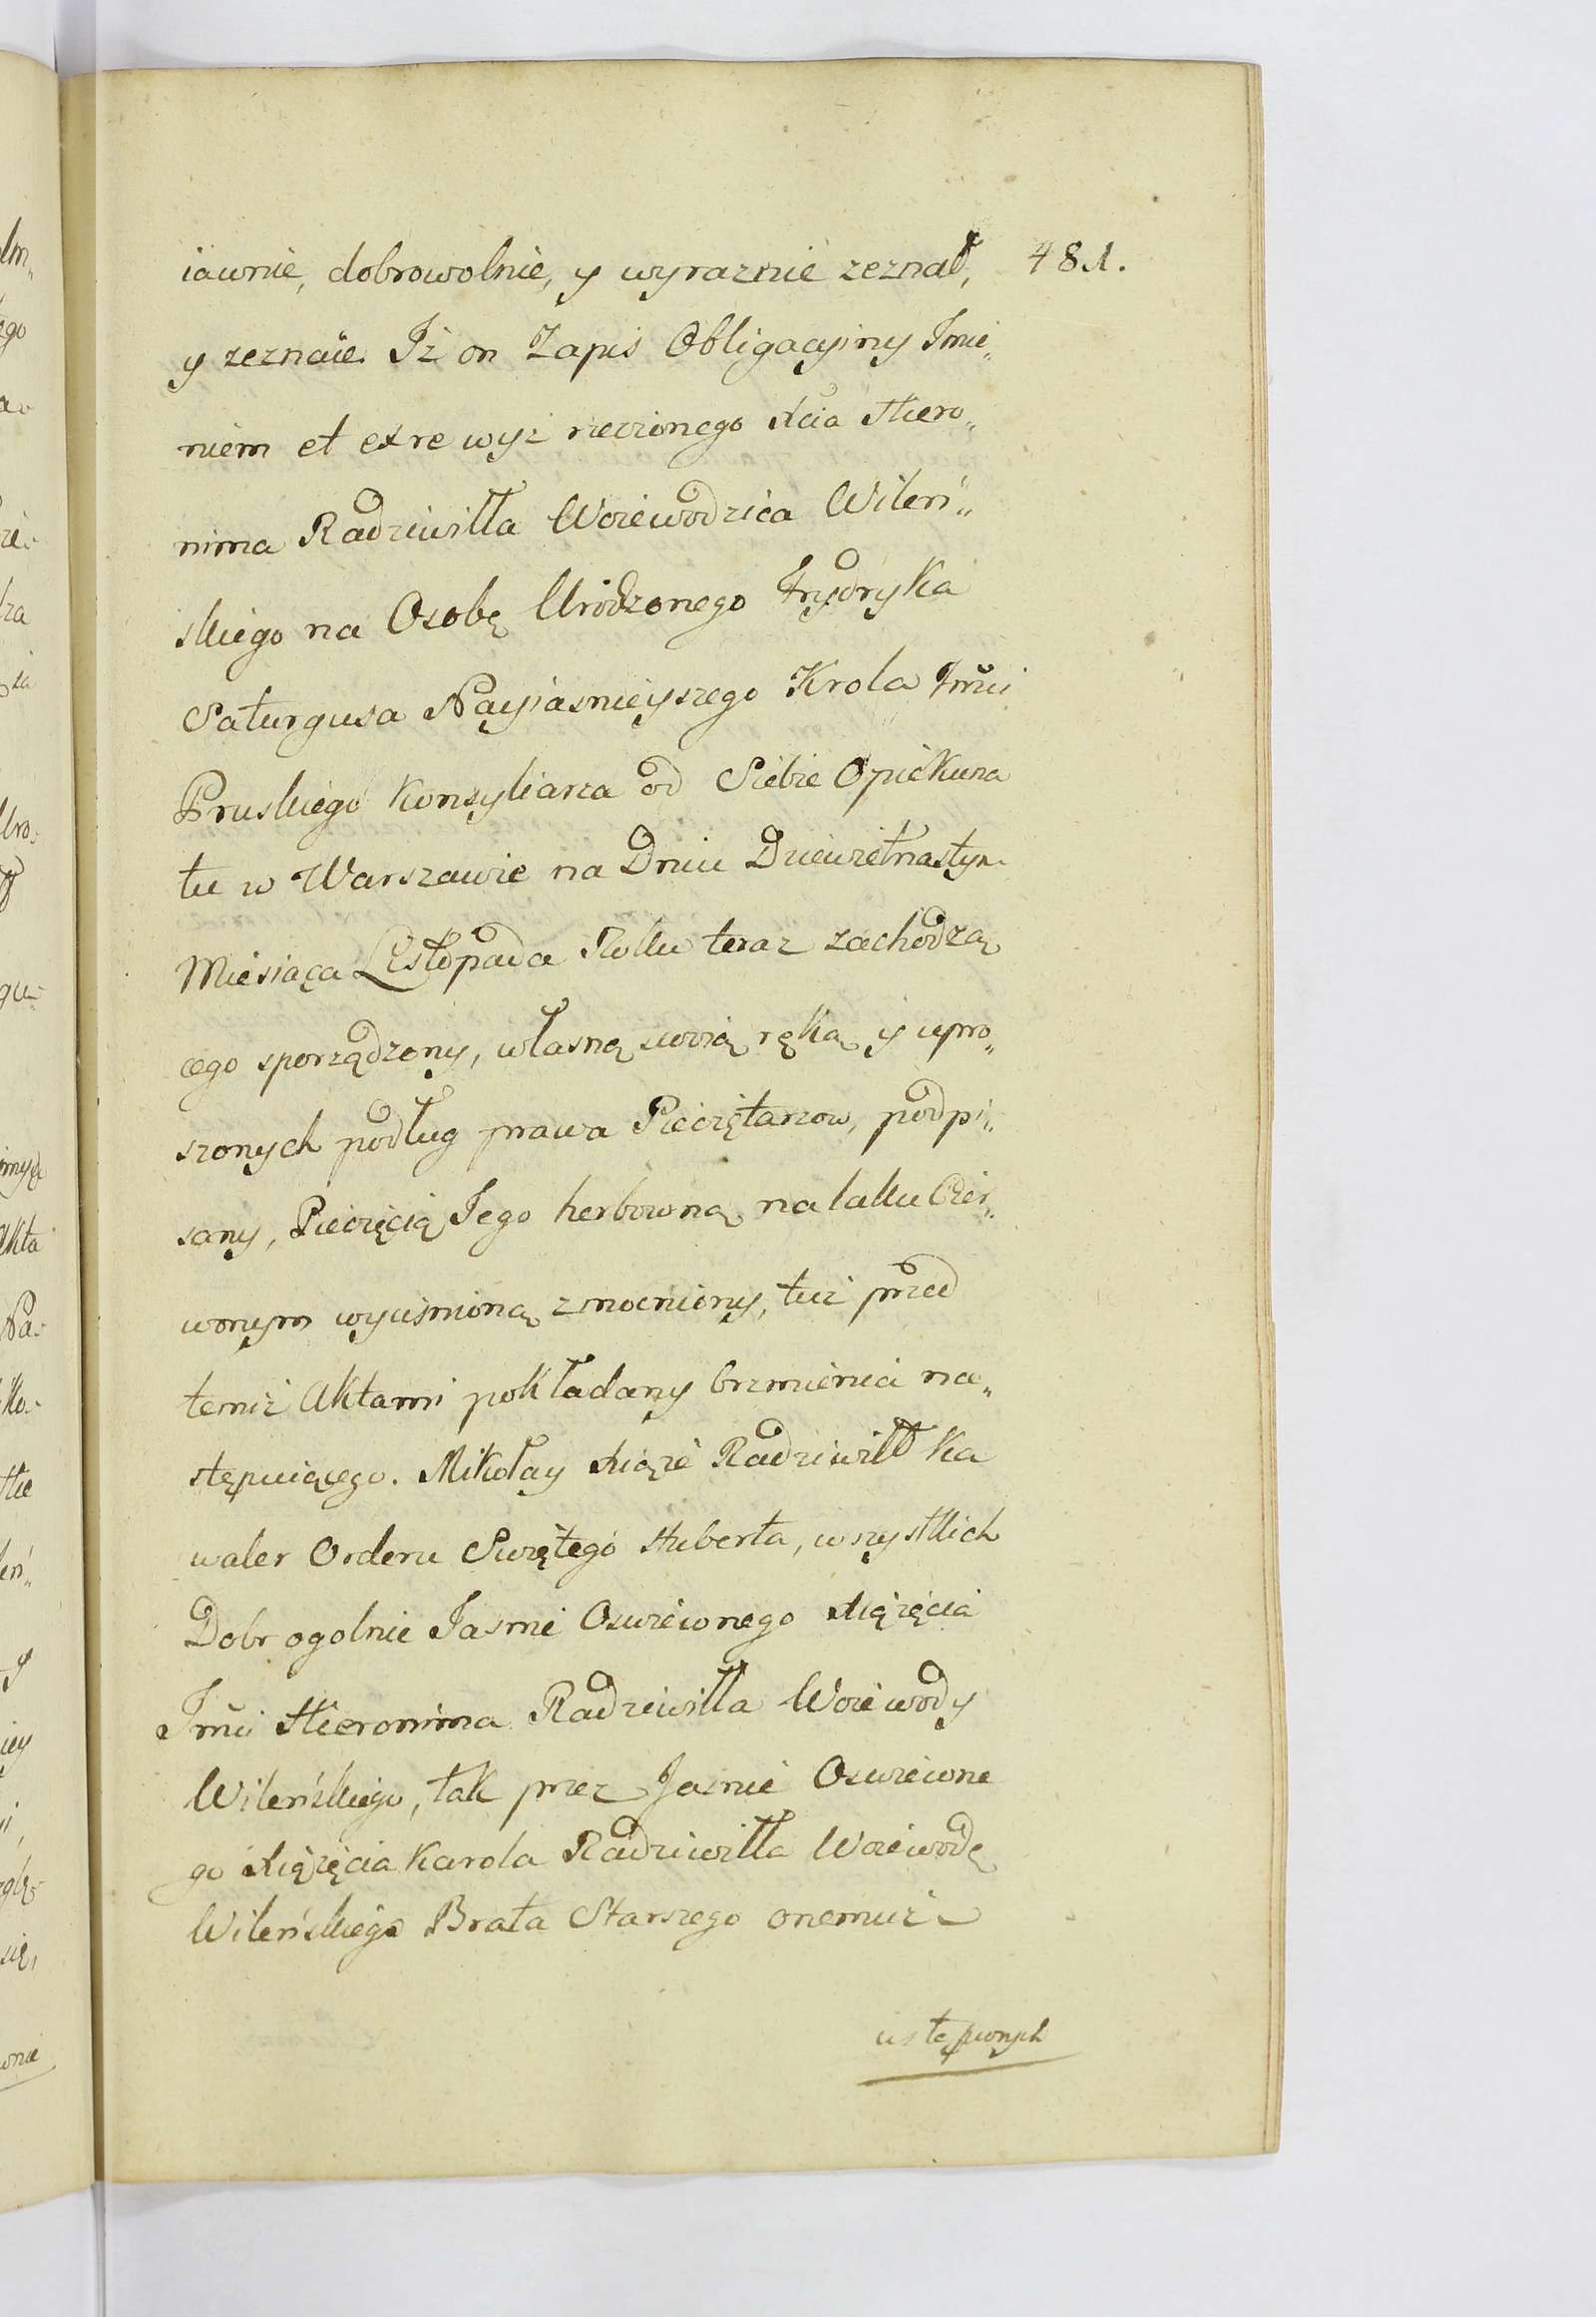 481.
iawnie, dobrowolnie, y wyraznie zeznał,
y zeznaie. Iż on Zapis Obligacyiny Imie„
niem et ex re wyż rzeczonego Xcia Hiero„
nima Radziwiłła Woiewodzica Wileń„
skiego na Osobę Urodzonego Frydryka
Saturgusa Nayiasnieyszego Krola Jmci
Pruskiego Konsyliarza od Siebie Opiekuna
tu w Warszawie na Dniu Dziewiętnastym
Miesiąca Listopada Roku teraz zachodzą
cego sporządzony, własną swoią ręką y upro„
szonych podług prawa Pieczętarzow, podpi„
sany, Pieczęcią Jego herbowną na laku Czer„
wonym wycisnioną zmocniony, tuż przed
temiż Aktami pokładany brzmienia na„
stępuiącego. Mikołay Xiąże Radziwiłł Ka
waler Orderu Swiętego Huberta, wszystkich
Dobr ogolnie Jasnie Oswieconego Xiążęcia
Jmci Hieronima Radziwiłła Woiewody
Wileńskiego, tak przez Jasnie Oswiecone
go Xiążęcia Karola Radziwiłła Woiewodę
Wileńskiego Brata Starszego onemuż
ustępionych